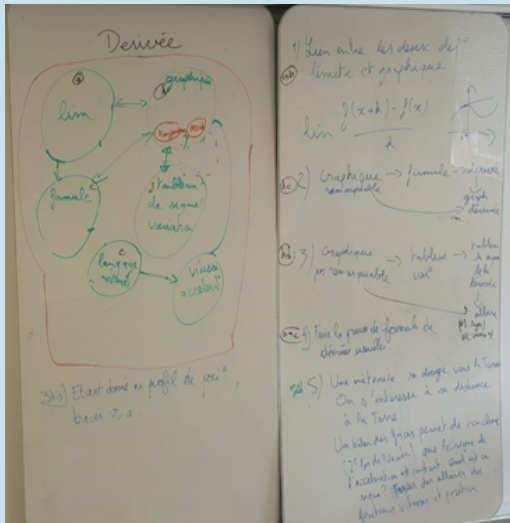 Derivée
a
lim
b
graphique
formule
c
tableau
de signe
variation
c
langage
vitesse
accélér°
3bis) Etant donné un profil de posi°,
tracer v, a.
1) Lien entre les deux def°
limite et graphique
lim f(x+h) - f(x)
h
2) Graphique → formule →
remarquable
graph
dérivée
3) Graphique → tableau →
non remarquable
var°
tableau
de signe
de la
dérivée
allure
4) Faire la preuve de formule de
dérivées usuelles.
5) Une météorite se dirige vers la Terre
On s'intéresse à sa distance
à la Terre.
Un bilan des forces permet de conclure
(2e loi de Newton) que
l'accélération est constant. Quel est ce
signe? Tracer des allures des
fonctions vitesses et position